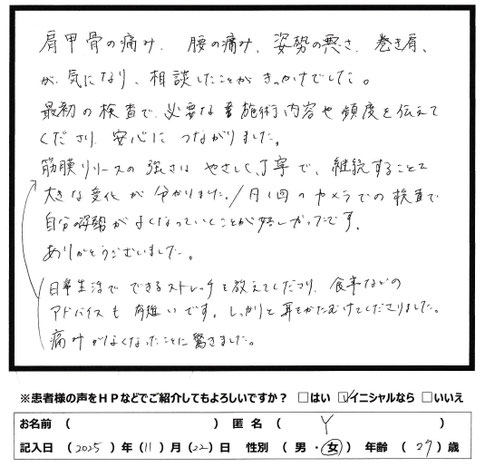 肩甲骨の痛み、腰の痛み、姿勢の悪さ、巻き肩、
が気になり、相談したことがきっかけでした。
最初の検査で、必要な施術内容や頻度を伝えて
くださり、安心につながりました。
筋膜リリースの強さは やさしく丁寧で、継続することで
大きな変化が分かりました。/月1回のカメラでの検査で
自分の姿勢がよくなっていくことが嬉しかったです。
ありがとうございました。
日常生活でできるストレッチを教えてくださり、食事などの
アドバイスも有難いです。しっかりと耳をかたむけてくださりました。
痛みがよくなったことに驚きました。
※患者様の声をHPなどでご紹介してもよろしいですか？ □はい ☑イニシャルなら □いいえ
お名前 （ ） 匿名 （ Y ）
記入日 （2025）年（11）月（22）日 性別 （男・女） 年齢 （27）歳